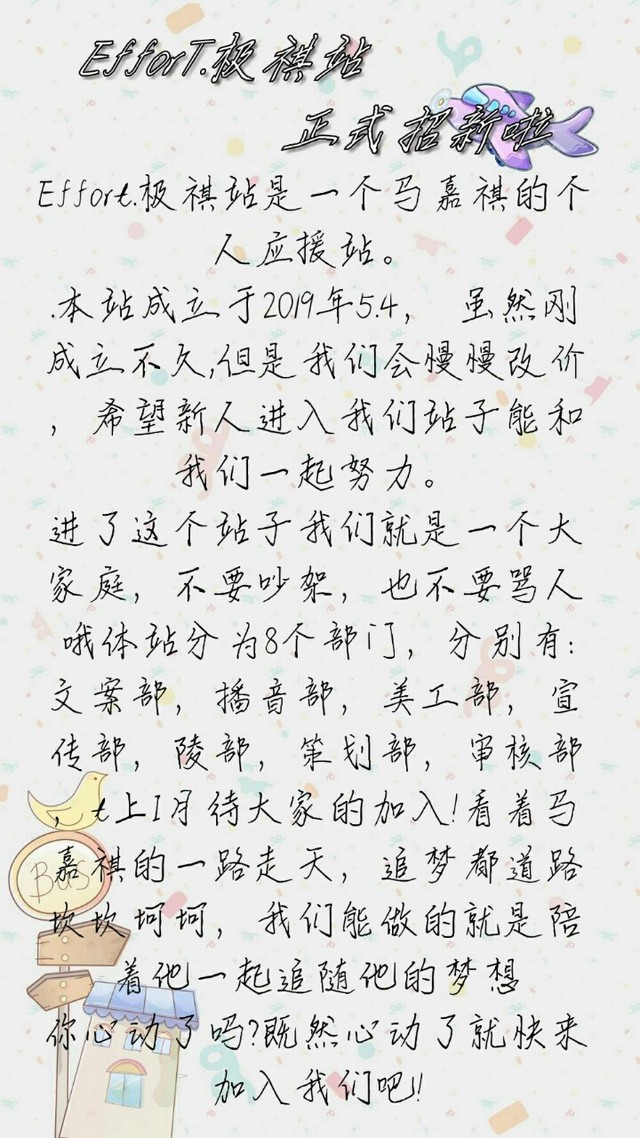 EfforT.极祺站
正式招新啦
Effort.极祺站是一个马嘉祺的个
人应援站。
.本站成立于2019年5.4， 虽然刚
成立不久,但是我们会慢慢改价
，希望新人进入我们站子能和
我们一起努力。
进了这个站子我们就是一个大
家庭，不要吵架，也不要骂人
哦体站分为8个部门，分别有:
文案部，播音部，美工部，宣
传部，陵部，策划部，审核部
，t上I月待大家的加入!看着马
嘉祺的一路走天，追梦都道路
坎坎坷坷，我们能做的就是陪
着他一起追随他的梦想
你心动了吗?既然心动了就快来
加入我们吧!!